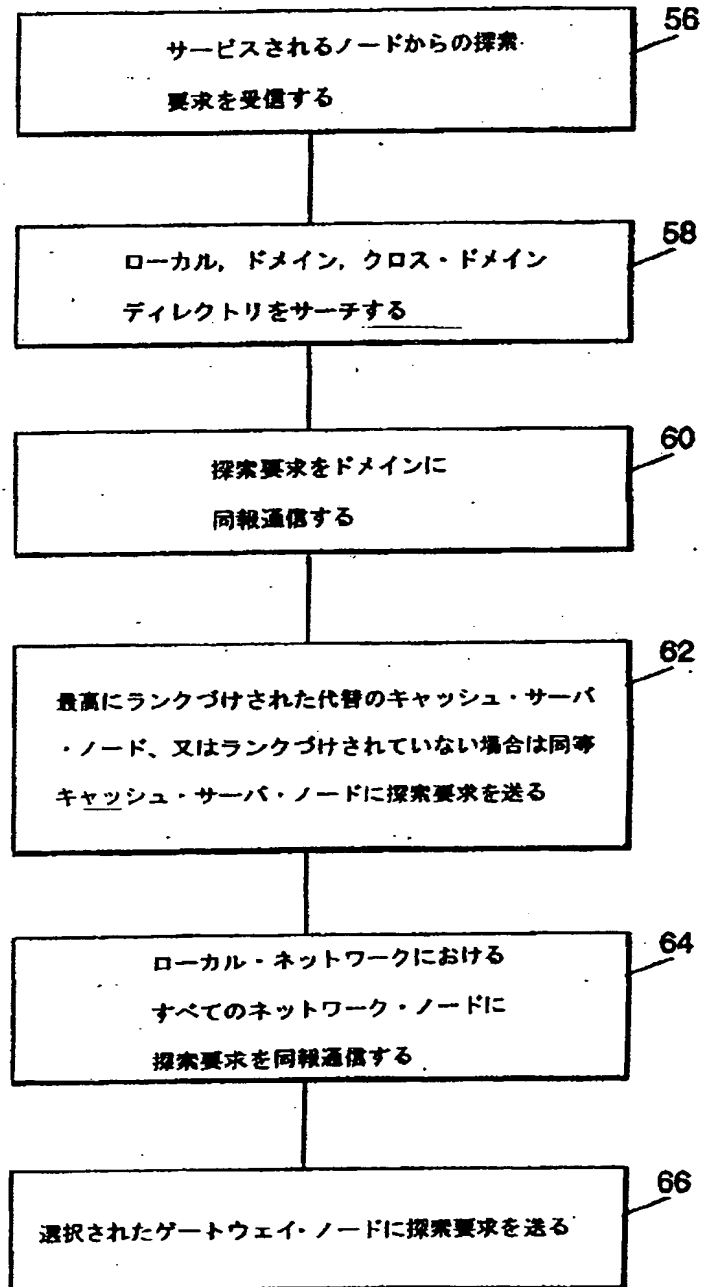 56
サービスされるノードからの探索
要求を受信する
58
ローカル，ドメイン，クロス・ドメイン
ディレクトリをサーチする
60
探索要求をドメインに
同報通信する
62
最高にランクづけされた代替のキャッシュ・サーバ
・ノード、又はランクづけされていない場合は同等
キャッシュ・サーバ・ノードに探索要求を送る
64
ローカル・ネットワークにおける
すべてのネットワーク・ノードに
探索要求を同報通信する
66
選択されたゲートウェイ・ノードに探索要求を送る